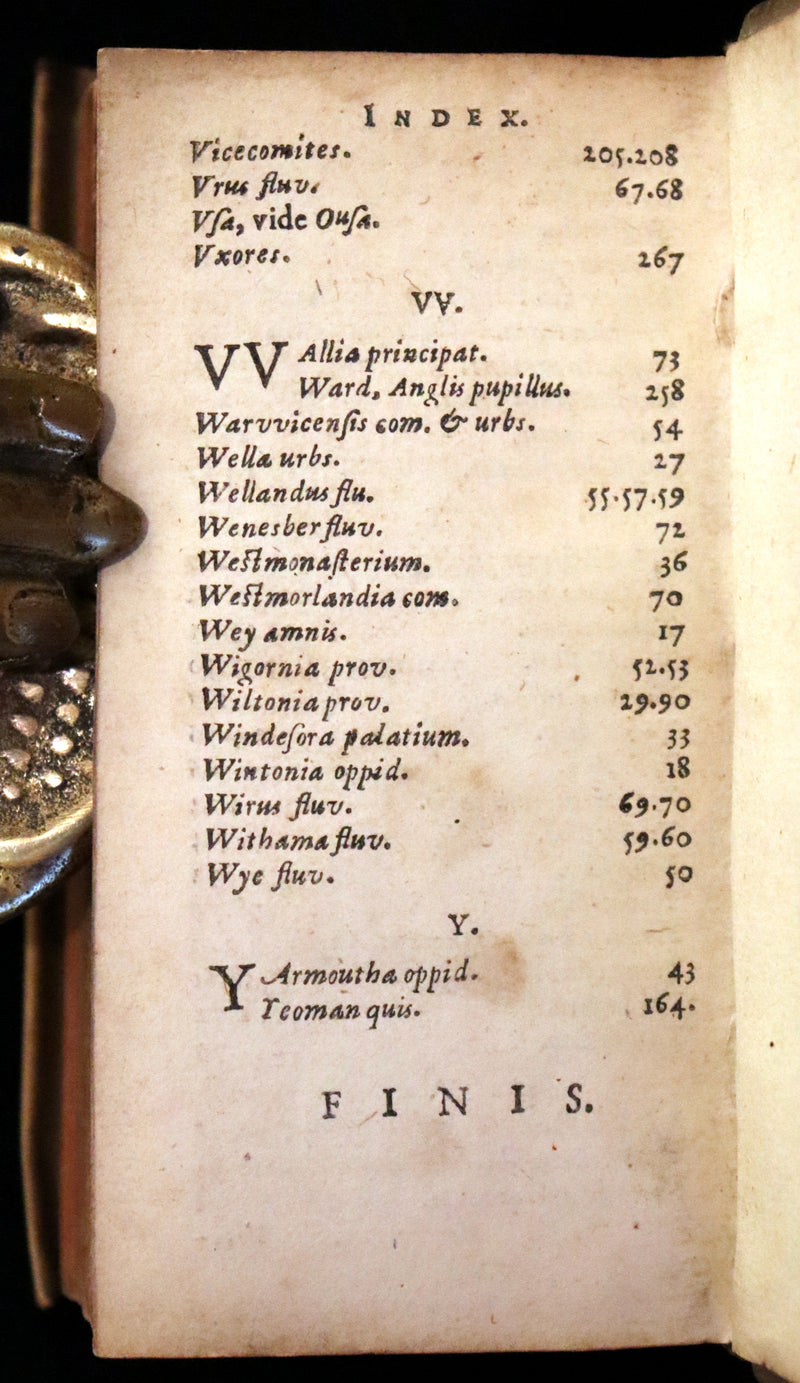 INDEX.
Vicecomites. 205.208
Vrus fluv. 67.68
Vſa, vide Ouſa.
Vxores. 267
VV.
VVAllia principat. 73
Ward, Anglis pupillus. 258
Warvvicenſis com. & urbs. 54
Wella urbs. 27
Wellandus flu. 55.57.59
Wenesber fluv. 72
Weſtmonaſterium. 36
Weſtmorlandia com. 70
Wey amnis. 17
Wigornia prov. 52.53
Wiltonia prov. 29.90
Windeſora palatium. 33
Wintonia oppid. 18
Wirus fluv. 69.70
Withama fluv. 59.60
Wye fluv. 50
Y.
YArmoutha oppid. 43
Yeoman quis. 164.
FINIS.